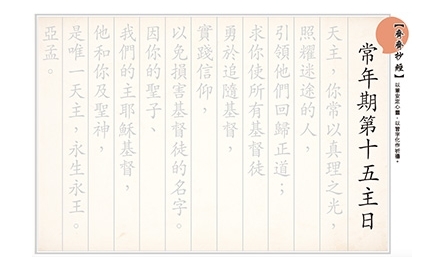 【齊齊抄經】
以筆安定心靈，以寫字化作祈禱。
常年期第十五主日
天主，你常以真理之光，
照耀迷途的人，
引領他們回歸正道；
求你使所有基督徒
勇於追隨基督，
實踐信仰，
以免損害基督徒的名字。
因你的聖子、
我們的主耶穌基督，
他和你及聖神，
是唯一天主，永生永王。
亞孟。